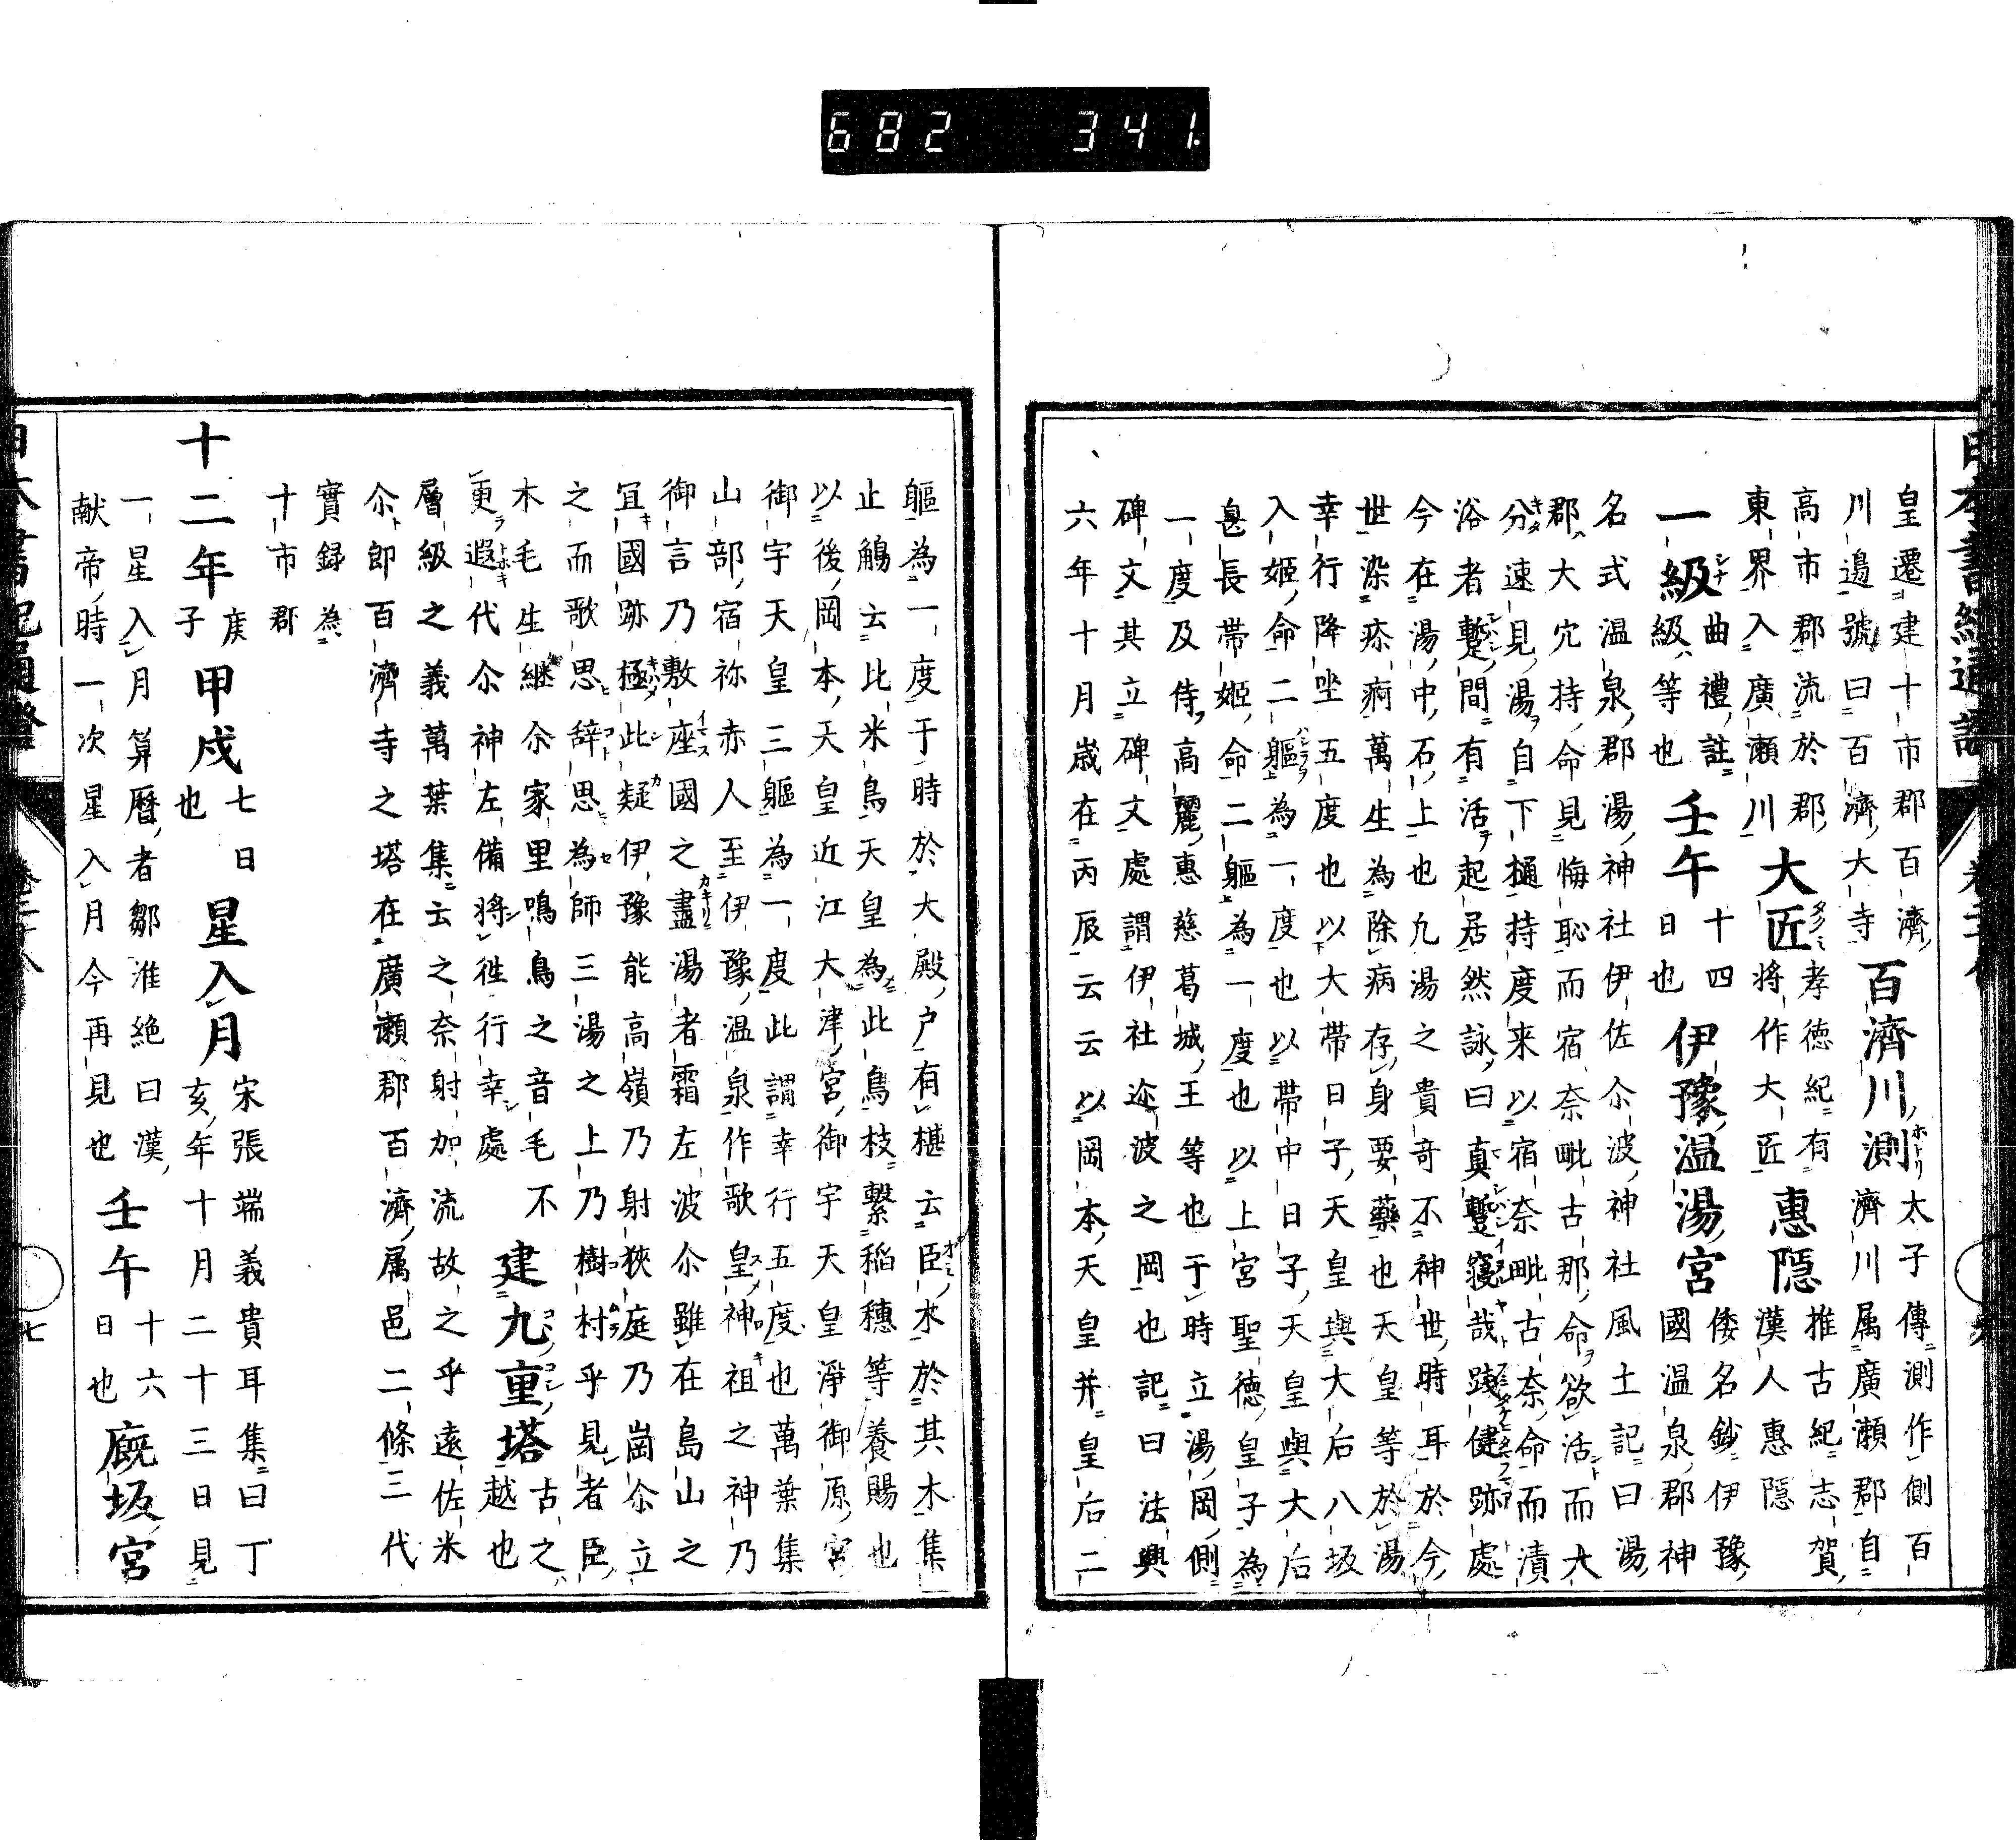 682 341
皇遷建十市郡百濟川邊號曰百濟大寺百濟川測太子傳測作側百濟川属廣瀬郡自
高市郡流於郡東界入廣瀬川大匠孝徳紀有将作大匠惠隠推古紀志賀漢人惠隠
一級曲禮註級等也壬午十四日也伊豫温湯宮倭名鈔伊豫國温泉郡神
名式温泉郡湯神社伊佐尒波神社風土記曰湯
郡大穴持命見悔恥而宿奈毗古那命欲活而大
分速見湯自下樋持度来以宿奈毗古奈命而漬
浴者蹔間有活起居然詠曰真蹔寝哉践健跡處
今在湯中石上也凡湯之貴奇不神世時耳於今
世染疹痾萬生為除病存身要藥也天皇等於湯
幸行降坐五度也以大帯日子天皇與大后八坂
入姫命二軀為一度也以帯中日子天皇與大后
息長帯姫命二軀為一度也以上宮聖徳皇子為
一度及侍高麗惠慈葛城王等也于時立湯岡側
碑文其立碑文處謂伊社迩波之岡也記曰法興
六年十月歳在丙辰云云以岡本天皇并皇后二
軀為一度于時於大殿戸有椹云臣木於其木集
止鵤云比米鳥天皇為此鳥枝繋稲穂等養賜也
以後岡本天皇近江大津宮御宇天皇淨御原宮
御宇天皇三軀為一度此謂幸行五度也萬葉集
山部宿祢赤人至伊豫温泉作歌皇神祖之神乃
御言乃敷座國之盡湯者霜左波尒雖在島山之
宜國跡極此疑伊豫能高嶺乃射狹庭乃崗尒立
之而歌思辞思為師三湯之上乃樹村乎見者臣
木毛生継尒家里鳴鳥之音毛不更遐代尒神左備将徃行幸處建九重塔古之越也
層級之義萬葉集云之奈射加流故之乎遠佐米
尒即百濟寺之塔在廣瀬郡百濟属邑二條三代
實録為十市郡
十二年庚子甲戌七日也星入月宋張端義貴耳集曰丁亥年十月二十三日見
一星入月算暦者鄒淮絶曰漢献帝時一次星入月今再見也壬午十六日也厩坂宮
日本書紀通證
七